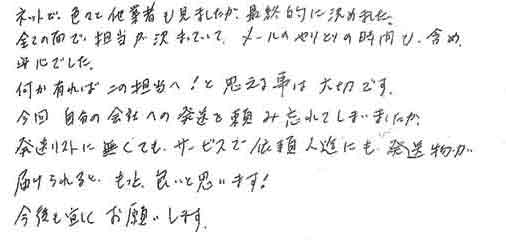 ネットで、色々と他業者も見ましたが、最終的に決めました。
全ての面で、担当が決まっていて、メールのやりとりの時間も、含め、
安心でした。
何か有れば この担当へ！と思える事は 大切です。
今回 自分の会社への発送を頼み忘れてしまいましたが、
発送リストに無くても、サービスで依頼人達にも、発送物が
届けられると、もっと、良いと思います！
今後も宜しくお願いします。